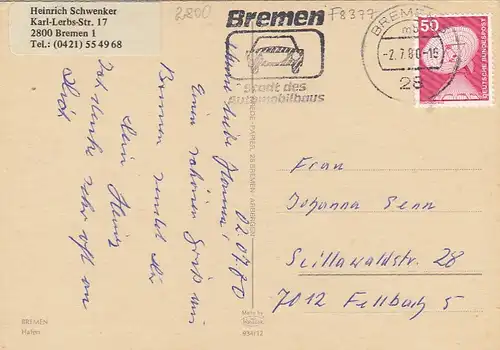 Heinrich Schwenker
Karl-Lerbs-Str. 17
2800 Bremen 1
Tel.: (0421) 55 49 68
2800
F8377
Bremen
Stadt des
Automobilbaus
BREMEN
-2.7.80-16
28
50
DEUTSCHE BUNDESPOST
02.07.80
Meine liebe Johanna!
Einen schönen Gruß aus
Bremen sendet Dir
Dein Heinz
Ich denke sehr oft an
Dich
Frau
Johanna Senn
Seillawaldstr. 28
7012 Fellbach 5
BREMEN
Hafen
934/12